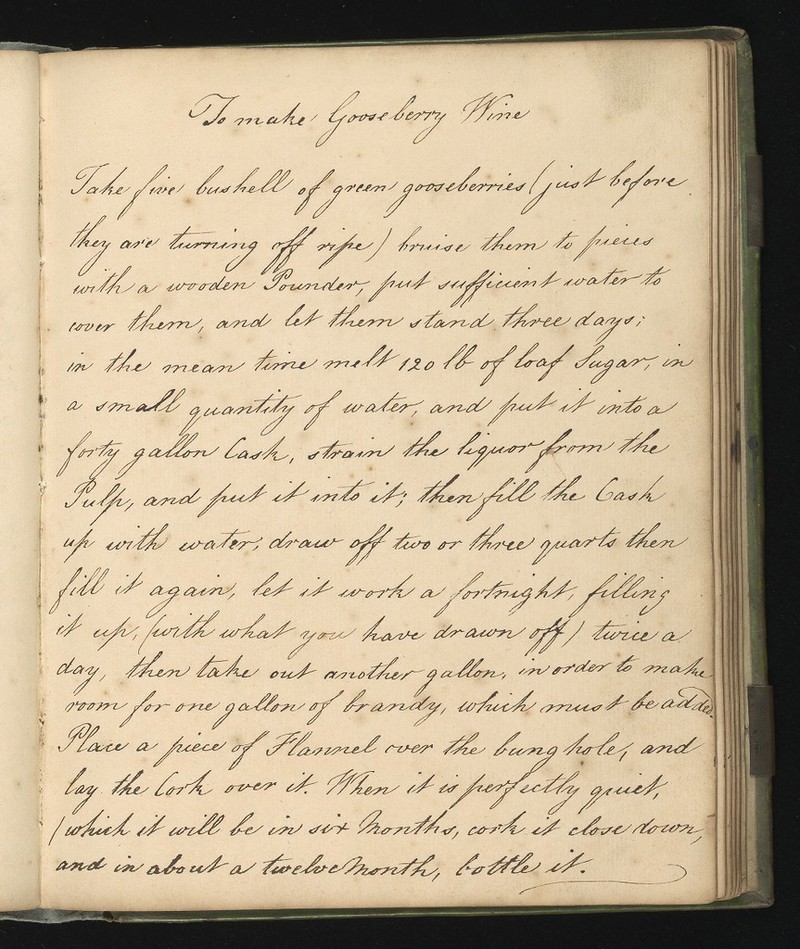 To make Gooseberry Wine
Take five bushell of green gooseberries (just before
they are turning off ripe) bruise them to pieces
with a wooden Pounder, put sufficient water to
cover them, and let them stand three days;
in the mean time melt 120 lb of loaf Sugar, in
a small quantity of water, and put it into a
forty gallon Cask, strain the liquor from the
Pulp, and put it into it; then fill the Cask
up with water; draw off two or three quarts then
fill it again, let it work a fortnight, filling
it up, (with what you have drawn off) twice a
day, then take out another gallon, in order to make
room for one gallon of brandy, which must be added.
Place a piece of Flannel over the bung hole, and
lay the Cork over it. When it is perfectly quiet,
(which it will be in six Months, cork it close down,
and in about a twelve Month, bottle it.